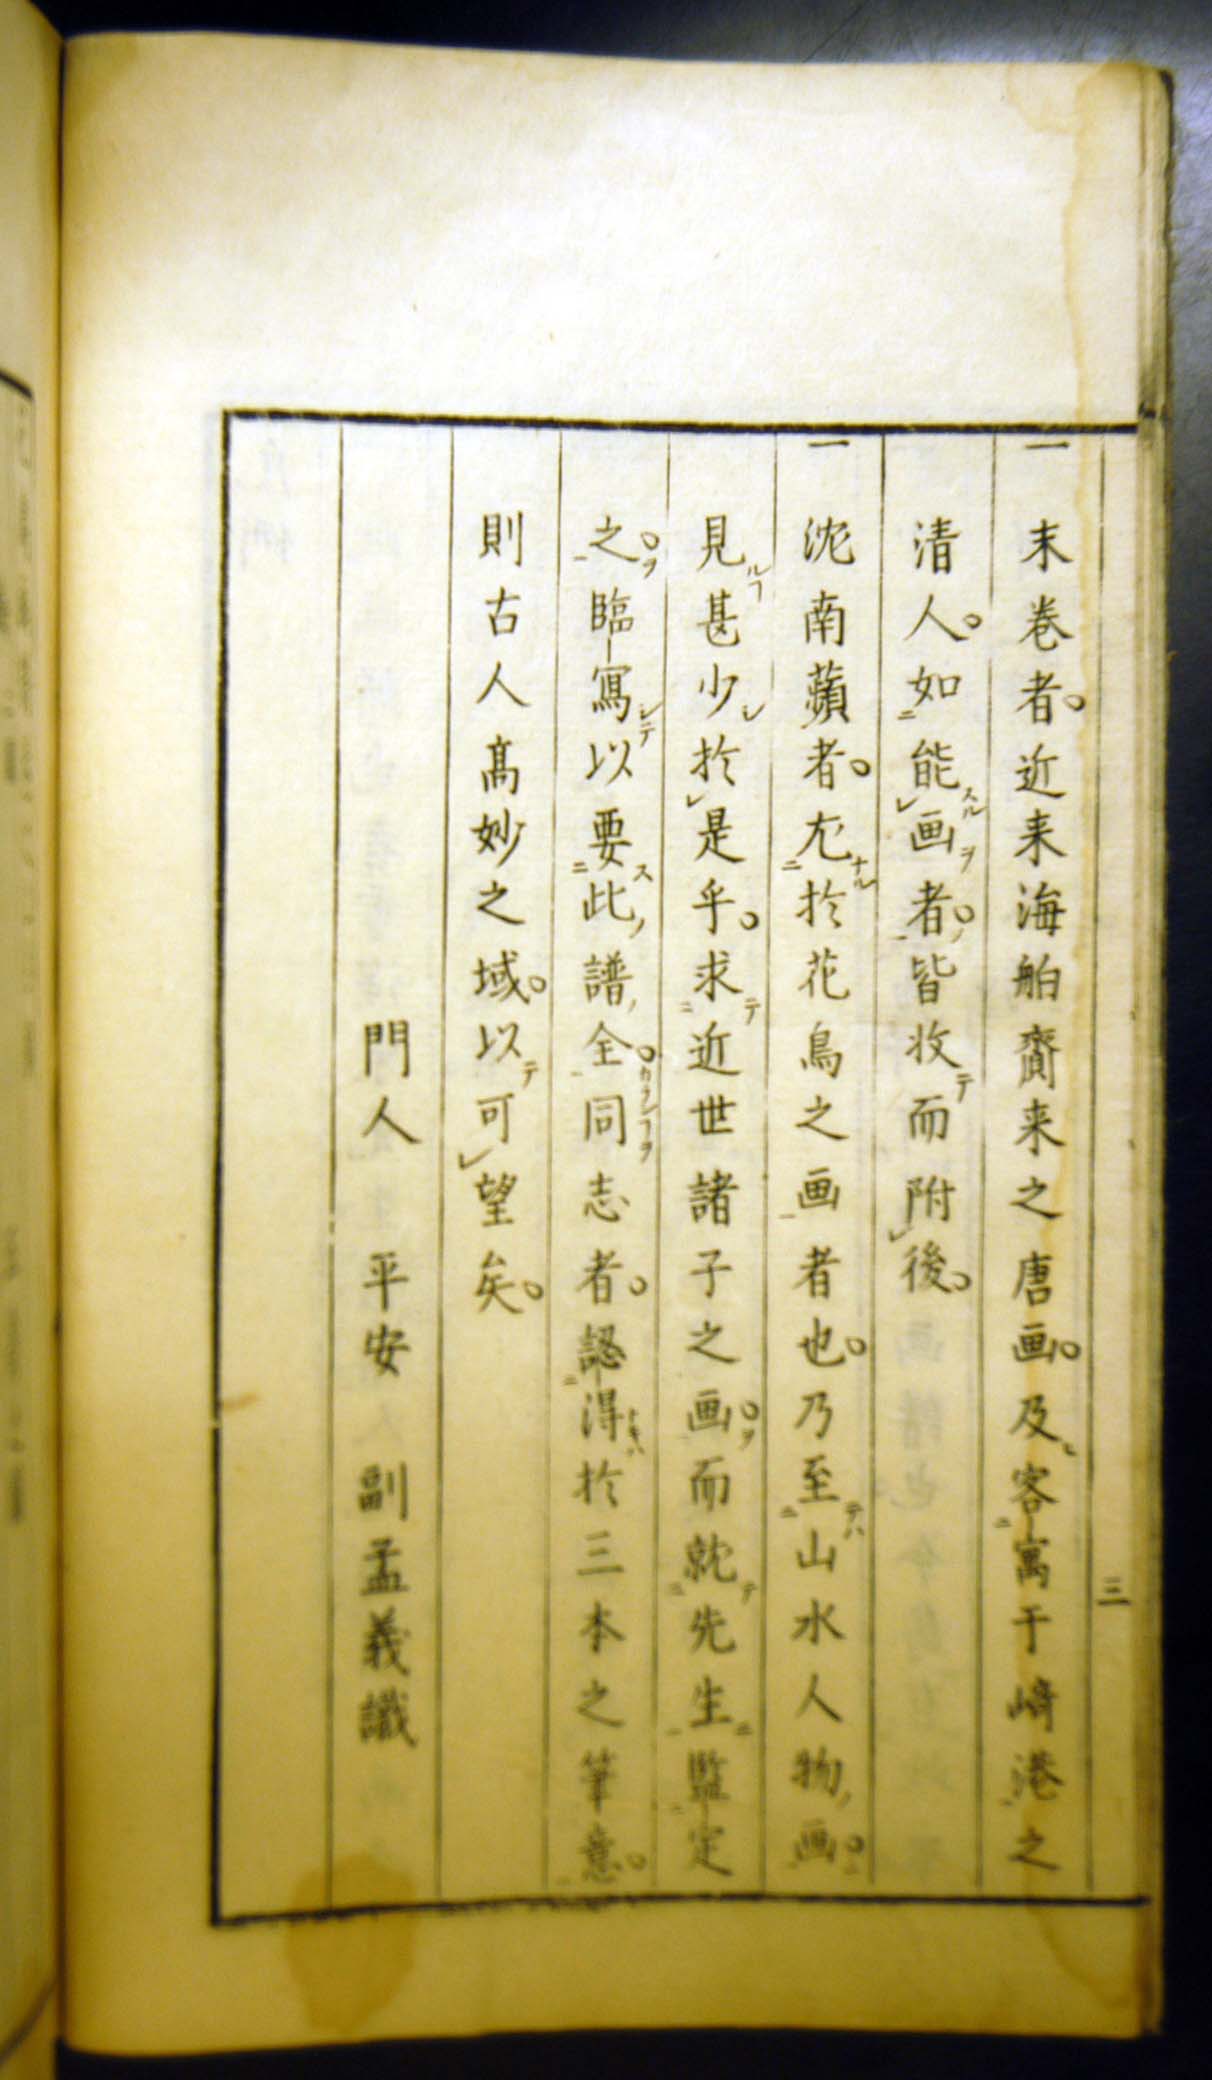 一 末巻者近来海舶齎来之唐画及客寓于崎港之
清人如能画者皆收而附後
一 沈南蘋者尤於花鳥之画者也乃至山水人物画
見甚少於是乎求近世諸子之画而就先生監定
之臨寫以要此譜全同志者認得於三本之筆意
則古人髙妙之域以可望矣
門人 平安 副孟義識
三